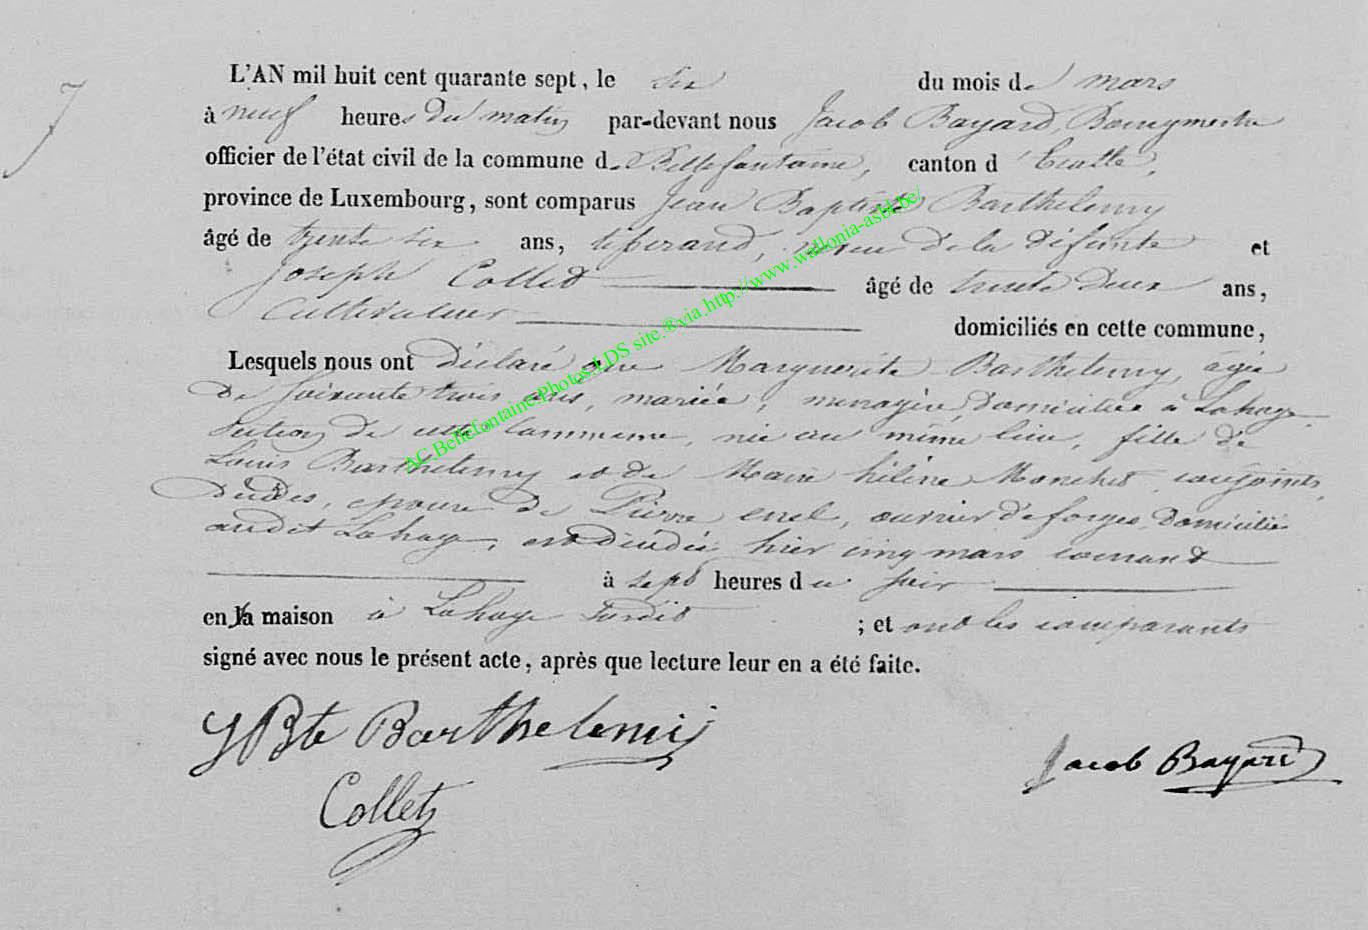 7
L'AN mil huit cent quarante sept, le six du mois de mars
à neuf heures du matin par-devant nous Jacob Bayard, Bourgmestre
officier de l'état civil de la commune de Bellefontaine, canton d'Etalle,
province de Luxembourg, sont comparus Jean Baptiste Barthelemy
âgé de trente six ans, neveu de la défunte et
Joseph Collet âgé de trente deux ans,
Cultivateur domiciliés en cette commune,
Lesquels nous ont déclaré que Marguerite Barthelemy, agée
de soixante trois ans, mariée, menagère, domiciliée à Lahage,
section de cette commune, née au même lieu, fille de
Louis Barthelemy et de Marie hélène Monchet, conjoints,
décédés, epouse de Pierre ouvrier de forges, domicilié
audit Lahage, est décédée hier cinq mars courant
à sept heures du soir
en sa maison à Lahage susdit ; et ont les comparants
signé avec nous le présent acte, après que lecture leur en a été faite.
JBte Barthelemi
Jacob Bayard
Collet
AC.Bellefontaine.Photos.LDS site.®via.http://www.wallonia-asbl.be/